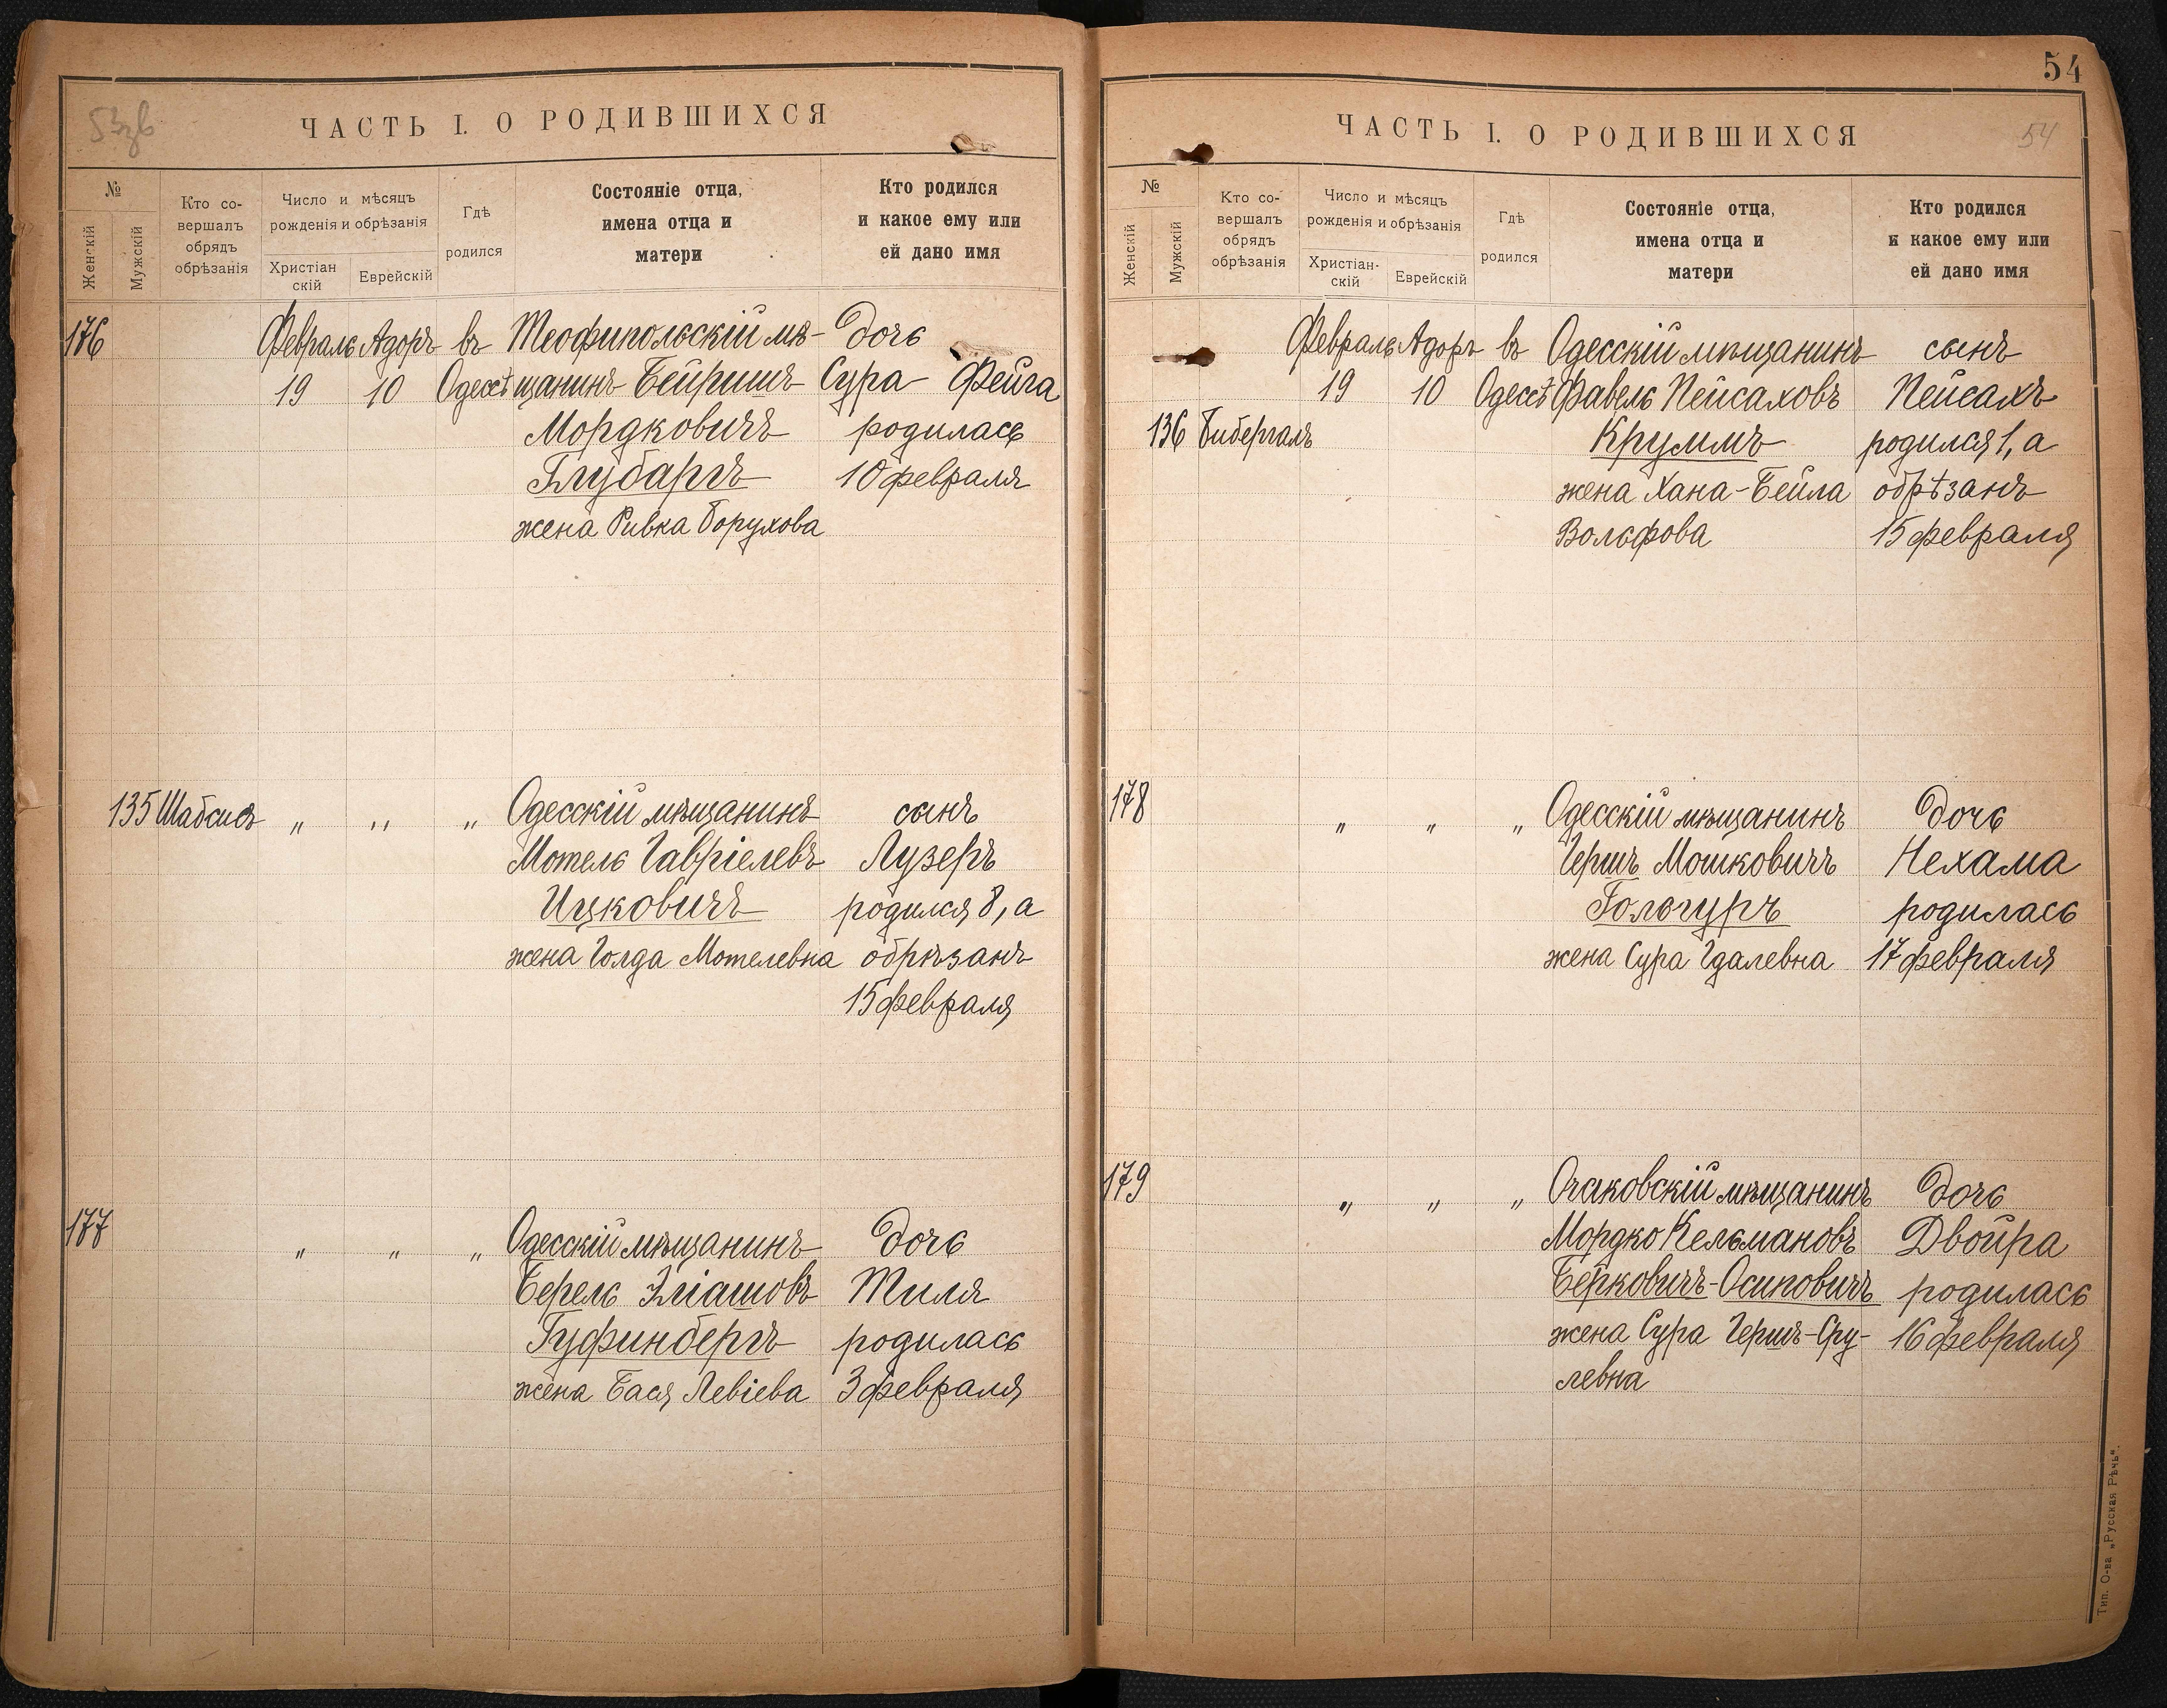 53об
ЧАСТЬ I. О РОДИВШИХСЯ
№
Женскій
Мужскій
Кто со-
вершалъ
обрядъ
обрѣзанія
Число и мѣсяцъ
рожденія и обрѣзанія
Христіан
скій
Еврейскій
Гдѣ
родился
Состояніе отца,
имена отца и
матери
Кто родился
и какое ему или
ей дано имя
176 Февраль Адоръ въ Теофипольскій мѣ- дочь
19 10 Одессѣ щанинъ Бейришъ Сура-Фейга
Мордковичъ родилась
Глубаргъ 10 февраля
жена Ривка Борухова
135 Шабсисъ " " " Одесскій мѣщанинъ сынъ
Мотель Гавріелевъ Лузеръ
Ицковичъ родился 8, а
жена Голда Мотелевна обрѣзанъ
15 февраля
177 " " " Одесскій мѣщанинъ дочь
Берель Эліашовъ Тиля
Гуфинбергъ родилась
жена Бася Левіева 3 февраля
54
ЧАСТЬ I. О РОДИВШИХСЯ
54
№
Женскій
Мужскій
Кто со-
вершалъ
обрядъ
обрѣзанія
Число и мѣсяцъ
рожденія и обрѣзанія
Христіан-
скій
Еврейскій
Гдѣ
родился
Состояніе отца,
имена отца и
матери
Кто родился
и какое ему или
ей дано имя
Февраль Адоръ въ Одесскій мѣщанинъ сынъ
19 10 Одессѣ Фавель Пейсаховъ Пейсахъ
136 Бибергалъ Круммъ родился 1, а
жена Хана-Бейла обрѣзанъ
Вольфова 15 февраля
178 " " " Одесскій мѣщанинъ дочь
Гершъ Мошковичъ Нехама
Гольгуръ родилась
жена Сура Гдалевна 17 февраля
179 " " " Очаковскій мѣщанинъ дочь
Мордко Кельмановъ Двойра
Берковичъ-Осиповичъ родилась
жена Сура Гершъ-Сру- 16 февраля
левна
Тип. О-ва „Русская Рѣчь“.